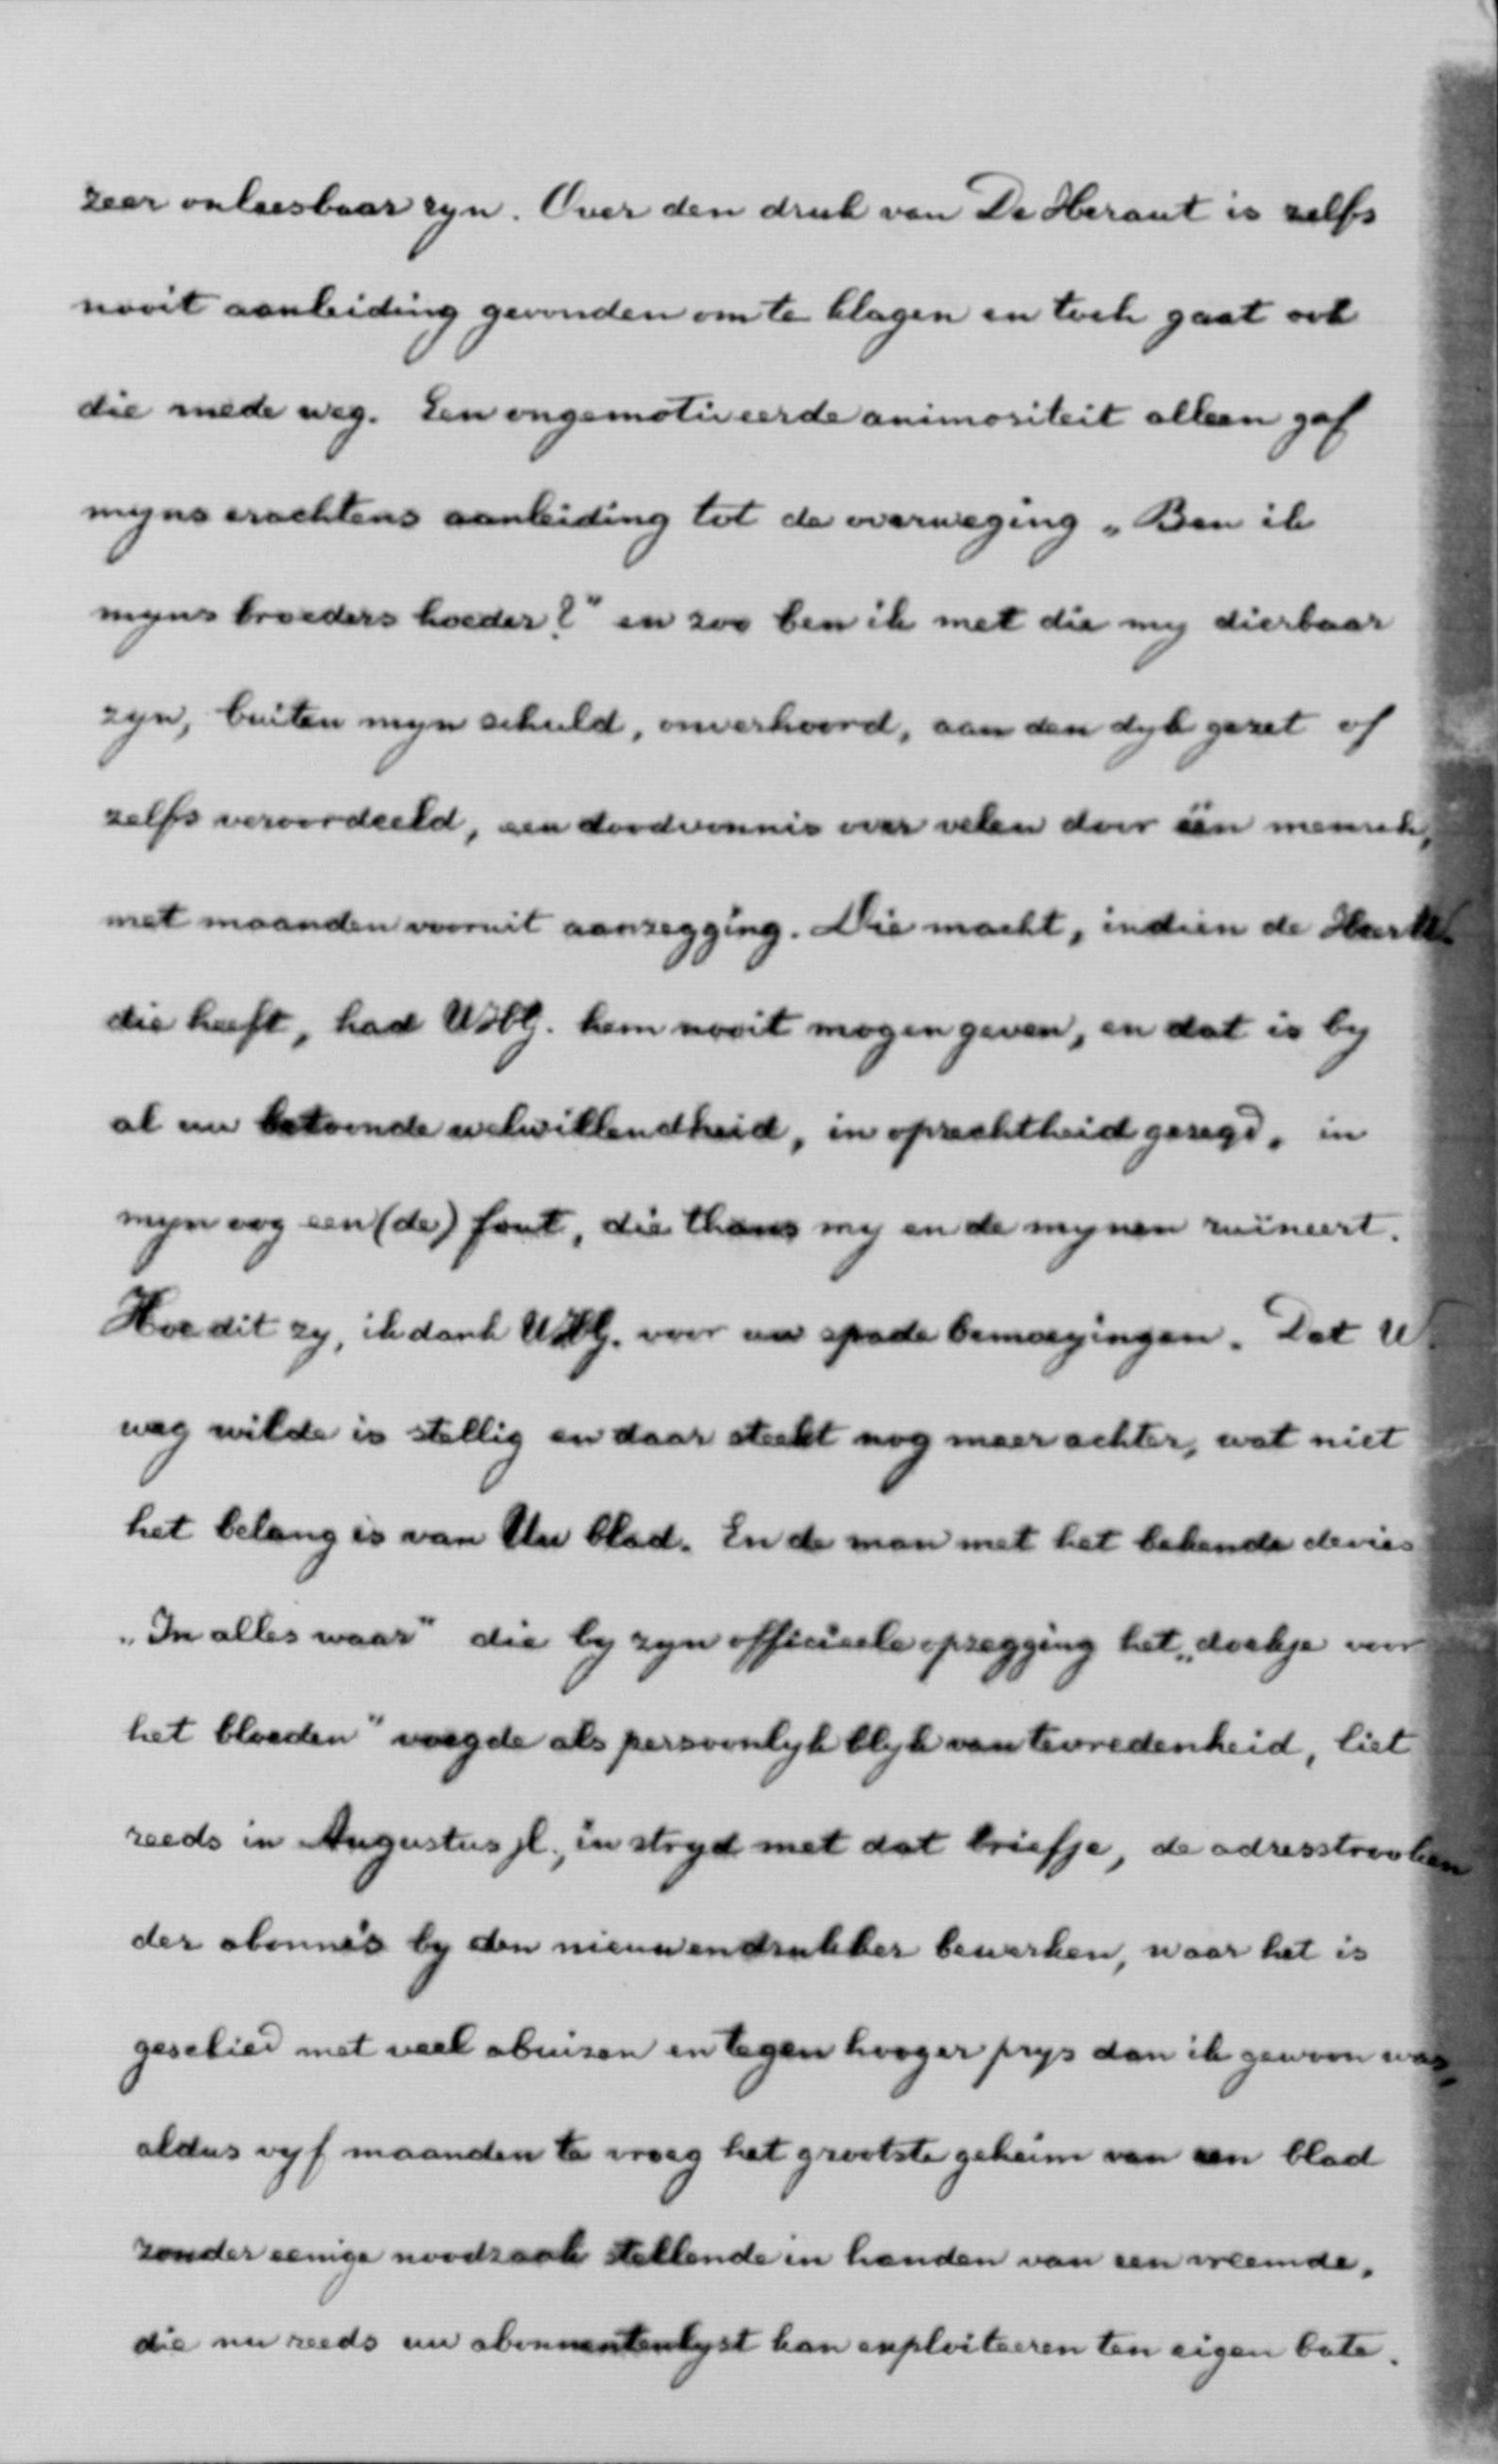 zeer onleesbaar zyn. Over den druk van De Heraut is zelfs
nooit aanleiding gevonden om te klagen en toch gaat ook
die mede weg. Een ongemotiveerde animositeit alleen gaf
myns erachtens aanleiding tot de overweging „Ben ik
myns broeders hoeder?" en zoo ben ik met die my dierbaar
zyn, buiten myn schuld, onverhoord, aan den dyk gezet of
zelfs veroordeeld, een doodvonnis over velen door één mensch,
met maanden vooruit aanzegging. Die macht, indien de Heer W.
die heeft, had UHbG. hem nooit mogen geven, en dat is by
al uw betoonde welwillendheid, in oprechtheid gezegd, in
myn oog een (de) fout, die thans my en de mynen ruïneert.
Hoe dit zy, ik dank UHbG. voor uw spade bemoeyingen. Dat W.
weg wilde is stellig en daar steekt nog meer achter, wat niet
het belang is van Uw blad. En de man met het bekende devies
„In alles waar" die by zyn officieele opzegging het „doekje voor
het bloeden" voegde als persoonlyk blyk van tevredenheid, liet
reeds in Augustus jl., in stryd met dat briefje, de adresstrooken
der abonné's by den nieuwen drukker bewerken, waar het is
geschied met veel abuizen en tegen hooger prys dan ik gewoon was,
aldus vyf maanden te vroeg het grootste geheim van een blad
zonder eenige noodzaak stellende in handen van een vreemde,
die nu reeds uw abonnentenlyst kan exploiteeren ten eigen bate.